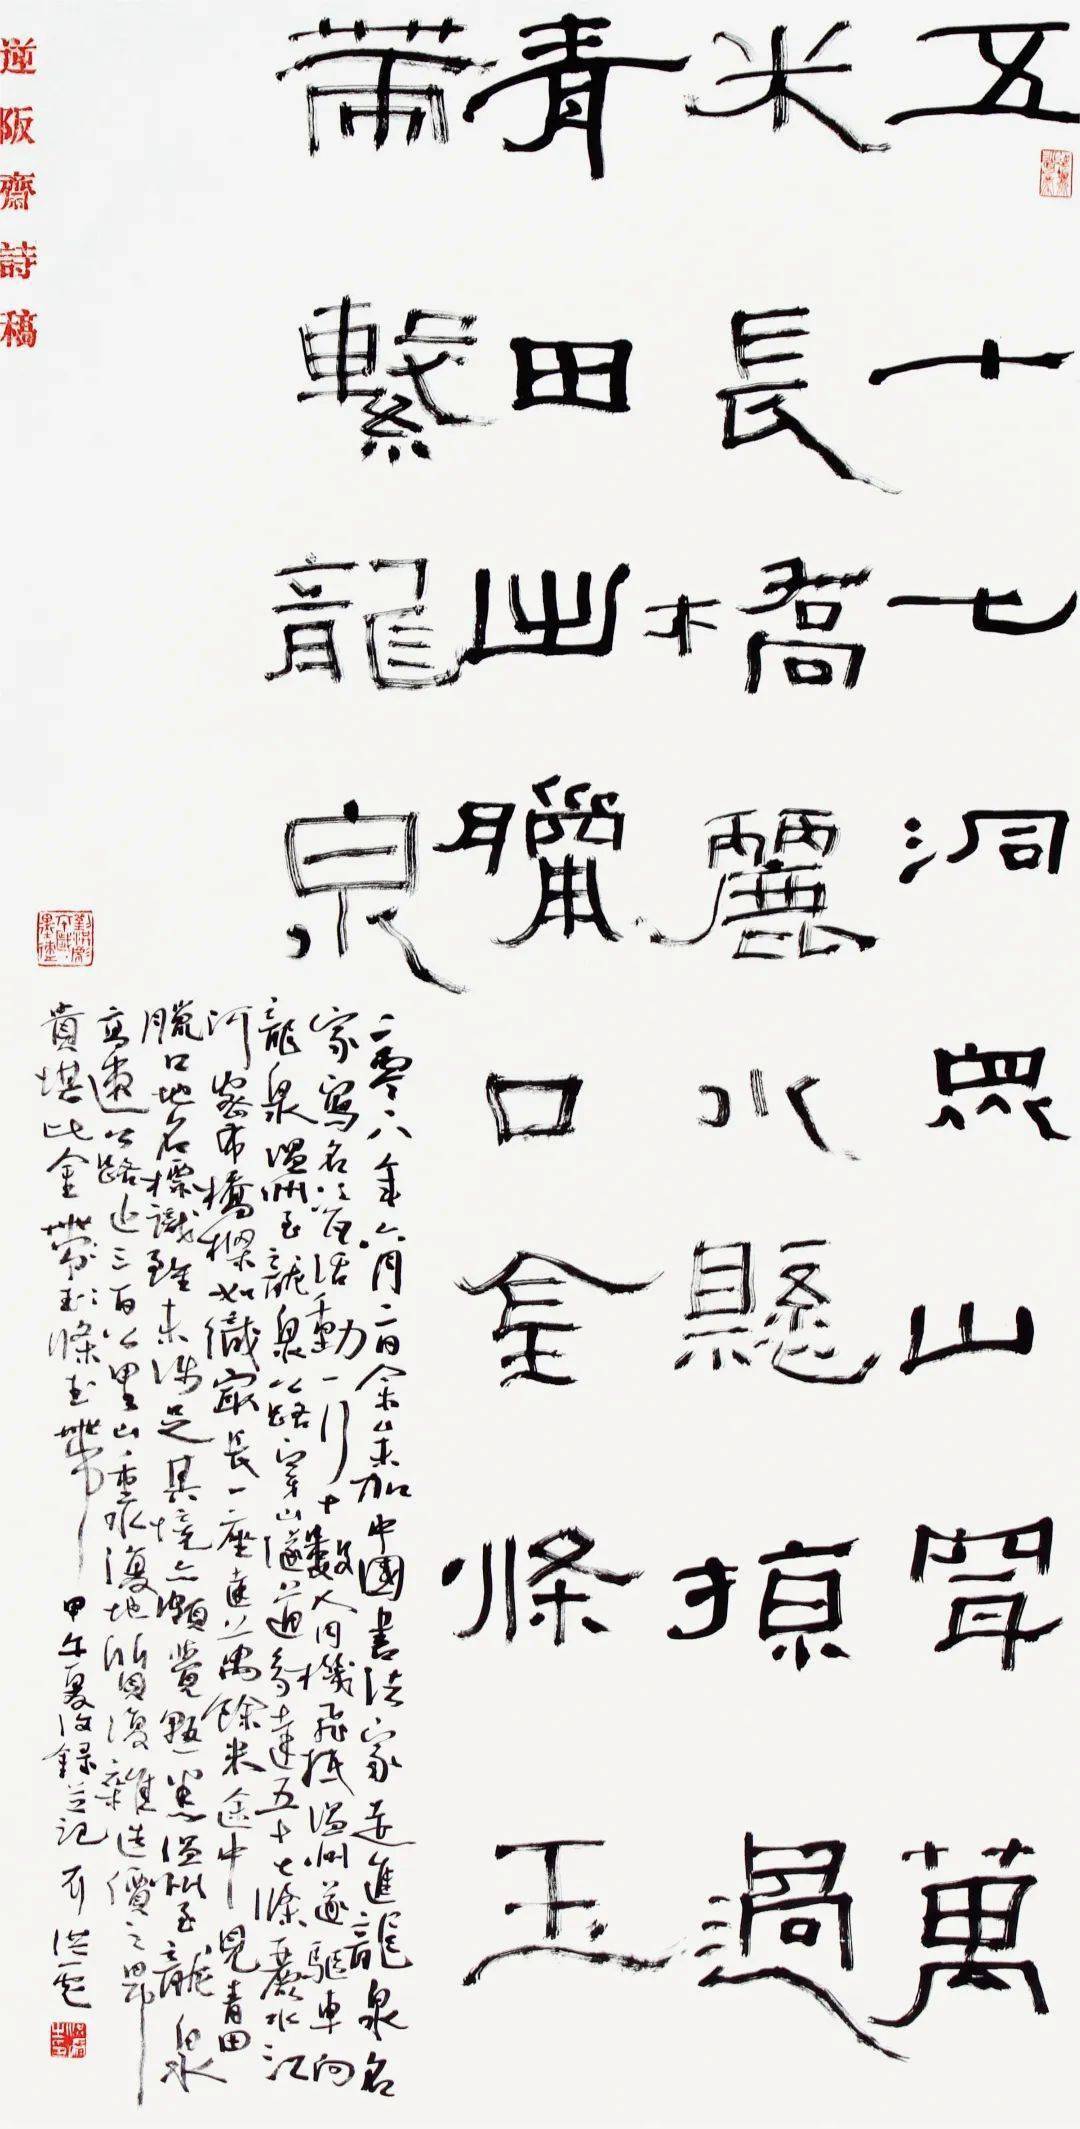 五十七洞眾山穿萬
米長橋麗水懸掠過
青田出臘口金條玉
帶繫龍泉
二零八年六月二日余參加中國書法家走進龍泉名
家寫名活動一行十數人同機飛抵溫州遂驅車向
龍泉溫州至龍泉公路穿山隧道多達五十七條麗水江
河密布橋樑如織最長一座達萬餘米途中見青田
臘口地名標識雖未涉足其境亦頗覺溫州至龍泉
高速公路近三百公里山重水複地質複雜造價之昂
貴堪比金條玉帶甲午夏錄並記洪彪
逆阪齋詩稿